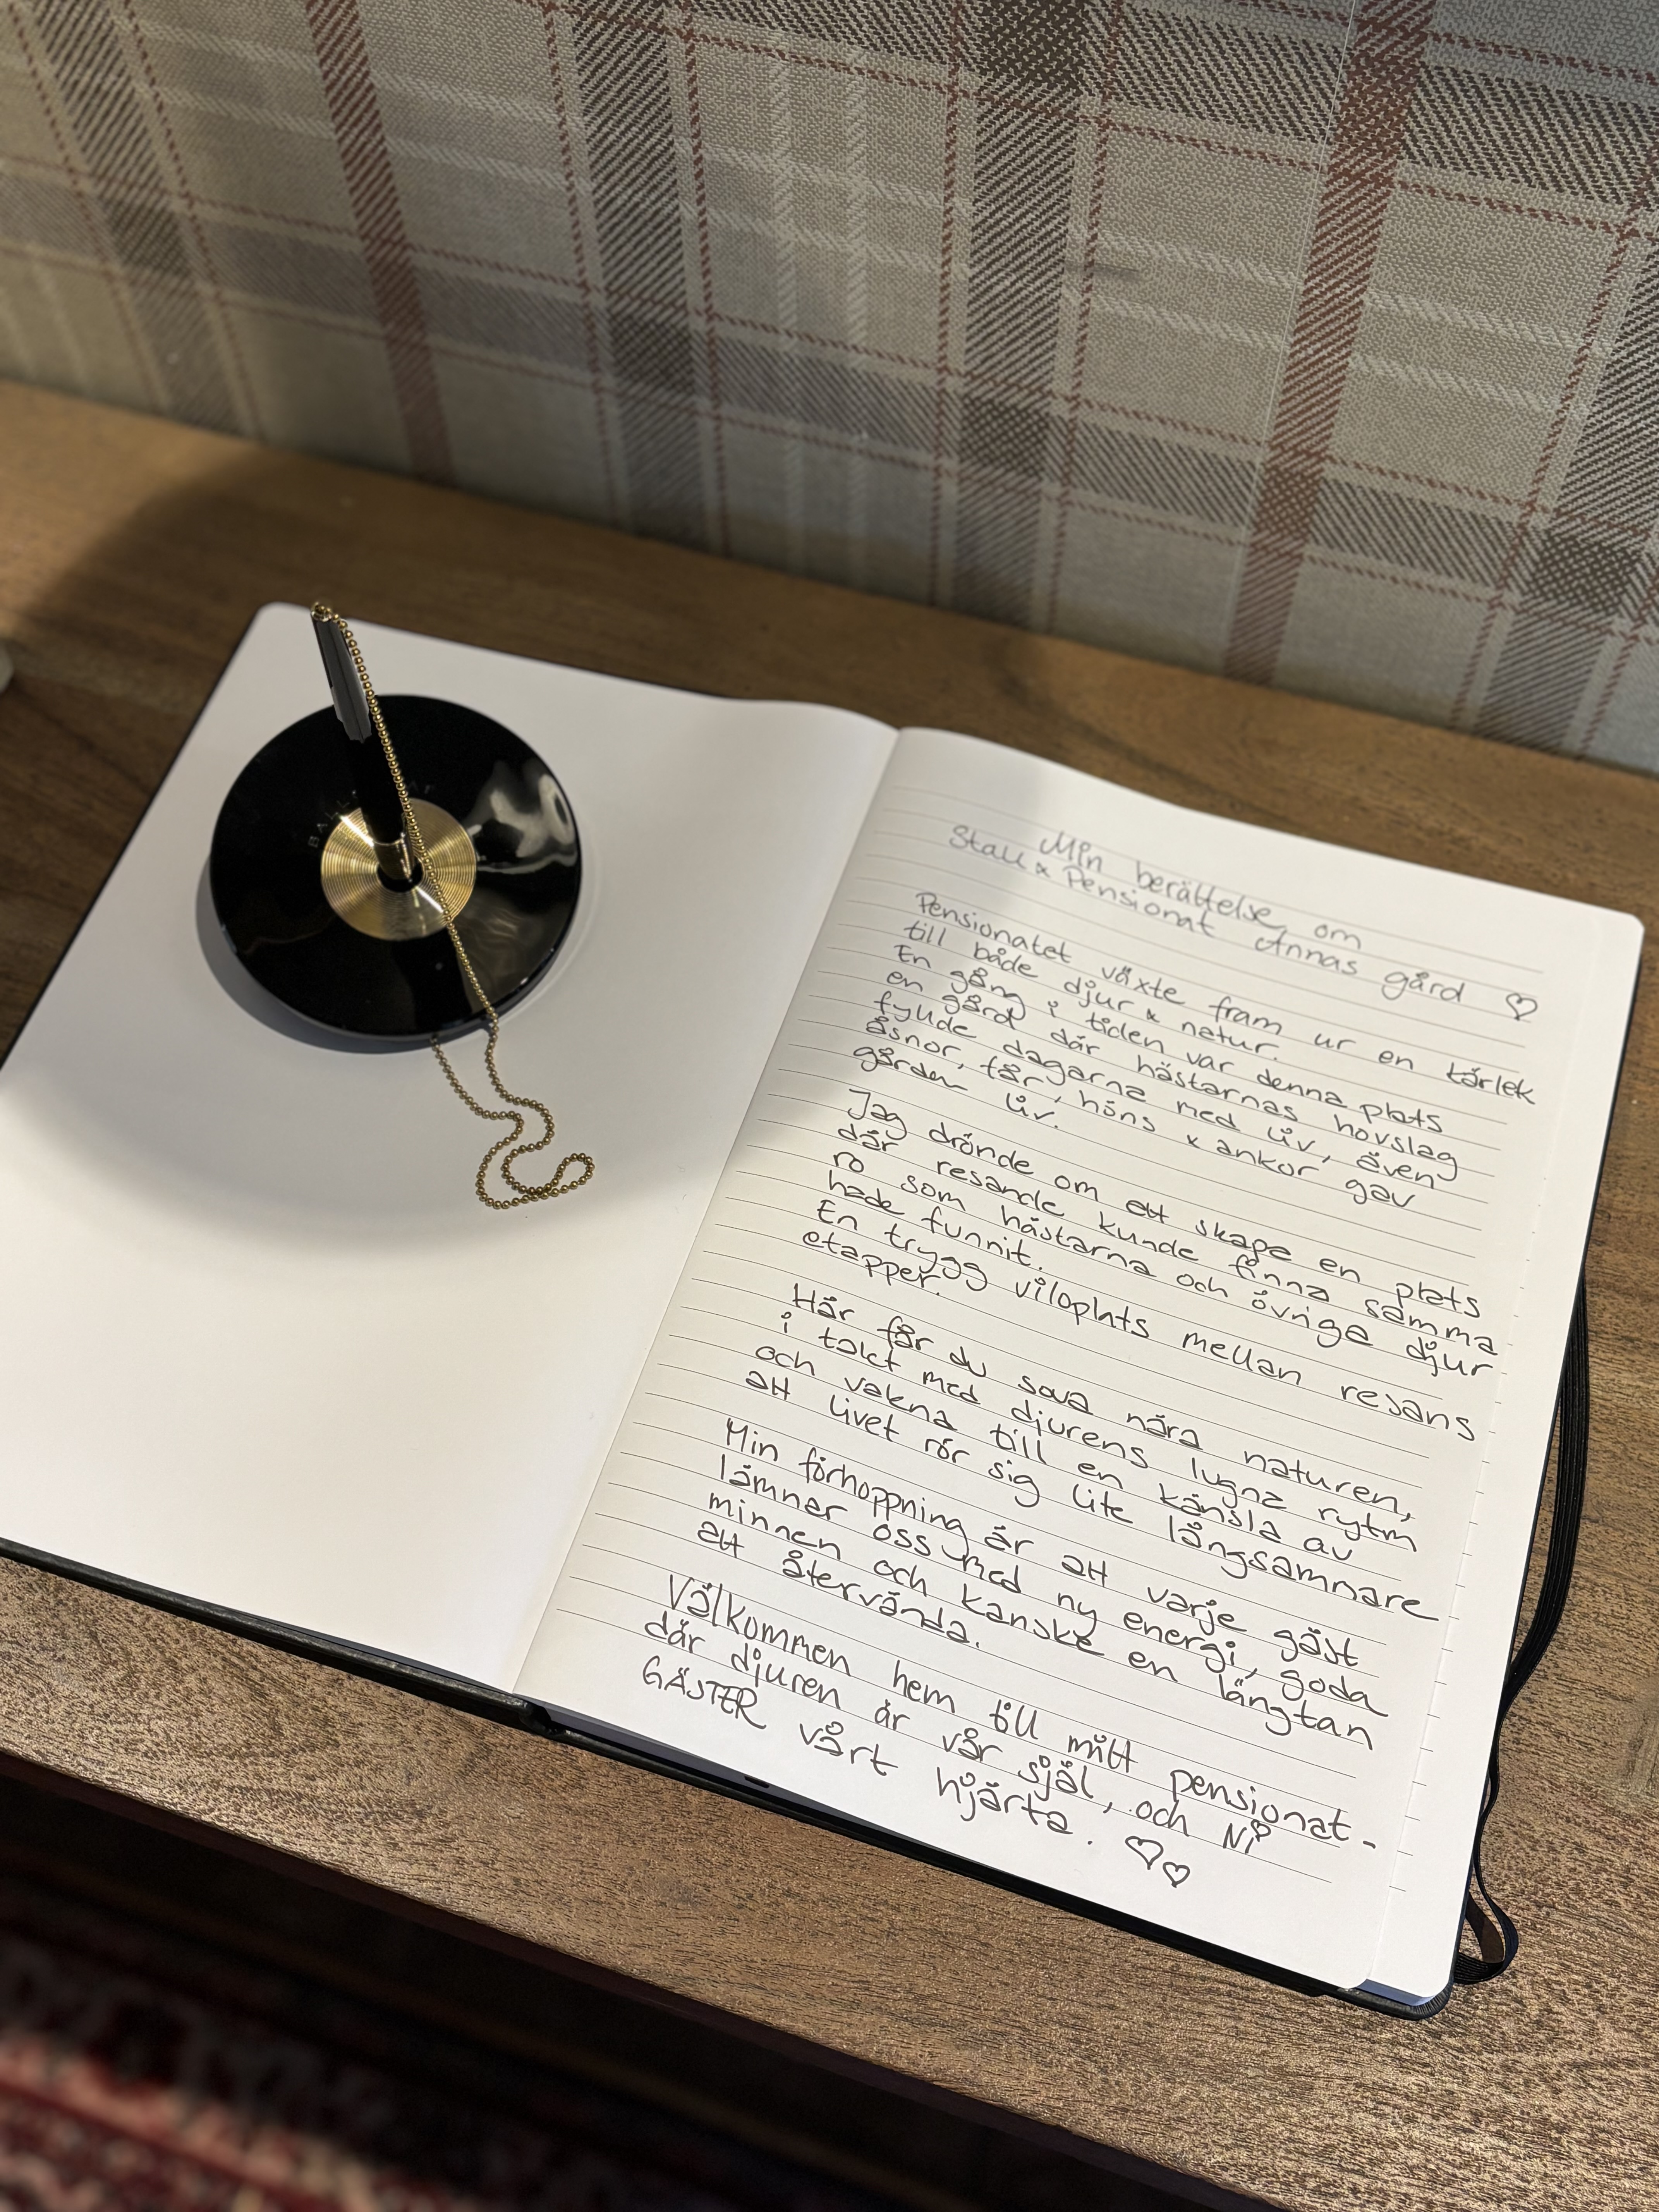 Min berättelse om
Stall & Pensionat Annas gård ♡
Pensionatet växte fram ur en kärlek
till både djur & natur.
En gång i tiden var denna plats
en gård där hästarnas hovslag
fyllde dagarna med liv, även
åsnor, får, höns & ankor gav
gården liv.
Jag drönde om ett skapa en plats
där resande kunde finna samma
ro som hästarna och övriga djur
hade funnit.
En trygg viloplats mellan resans
etapper.
Här får du sova nära naturen,
i takt med djurens lugna rytm
och vakna till en känsla av
att livet rör sig lite långsammare
Min förhoppning är att varje gäst
lämnar oss med ny energi, goda
minnen och kanske en längtan
att återvända.
Välkommen hem till mitt pensionat-
där djuren är vår själ, och Ni
GÄSTER vårt hjärta. ♡♡